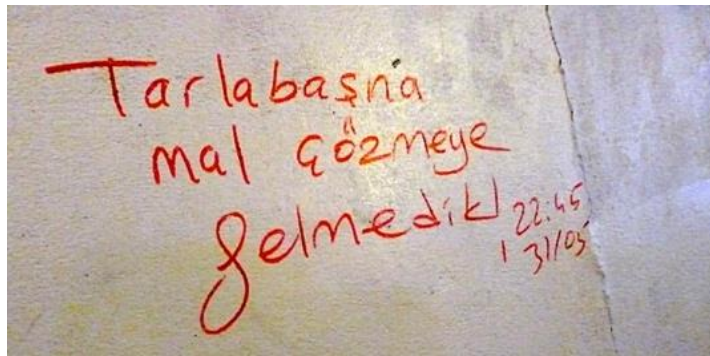 Tarlabaşna
mal çözmeye
gelmedik!
22:45
31/05